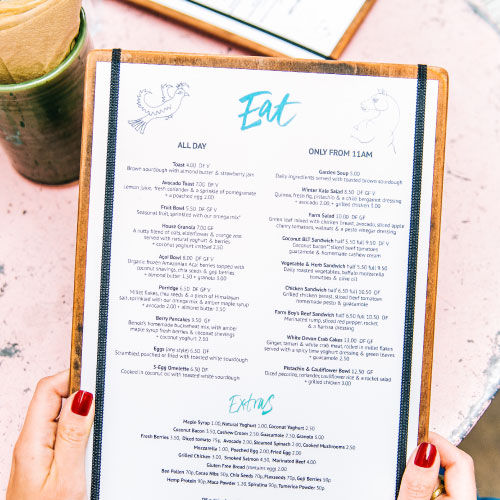 Eat
ALL DAY
Toast 4.00 DF V
Brown sourdough with almond butter & strawberry jam
Avocado Toast 7.00 DF V
Lemon juice, fresh coriander & a sprinkle of pomegranate
+ a poached egg 2.00
Fruit Bowl 5.50 DF GF V
Seasonal fruit, sprinkled with our omega mix
House Granola 7.00 GF V
A nutty blend of oats, elderflower & orange and
served with natural yoghurt & berries
+ coconut yoghurt
Açaí Bowl 8.00 DF V
Organic frozen Amazonian Açaí berries topped with
coconut shavings, chia seeds & goji berries
+ almond butter 1.50 + granola 3.00
Porridge 6.50 DF GF V
Millet flakes, chia seeds & a pinch of Himalayan
salt, sprinkled with our omega mix & amber maple syrup
+ avocado 2.00 + almond butter 1.50
Berry Pancakes
homemade buckwheat mix, with amber
maple syrup fresh berries & coconut shavings
+ coconut yoghurt 2.50
Eggs (any style) 6.50 DF
Scrambled, poached or fried with toasted white sourdough
3-Egg Omelette 6.50 DF
Cooked in coconut oil with toasted white sourdough
ONLY FROM 11AM
Garden Soup 5.00
Daily ingredients served with toasted brown sourdough
Winter Kale Salad 8.50 DF V
Quinoa, freekeh, pistachio & a chilli bergamot dressing
+ avocado 2.00 + grilled chicken 3.00
Farm Salad 10.00 DF GF
Green leaf mixed with chicken breast, avocado, sliced apple
cherry tomatoes, walnuts & a pesto vinegar dressing
Coconut BLT Sandwich half 5.50 full 9.50 DF V
Coconut bacon, sliced beef tomatoes
guacamole & homemade cashew cream
Vegetable & Herb Sandwich half 5.50 full 9.50
Daily roasted vegetables, buffalo mozzarella
tomatoes & olive oil
Chicken Sandwich half 6.50 full 10.50 DF
Grilled chicken breast, sliced beef tomatoes
homemade pesto & guacamole
Farm Boy's Beef Sandwich half 6.50 full 10.50
Marinated rump, sliced red pepper, rocket
& a harissa dressing
White Devon Crab Cakes 13.00 DF
Ginger, tamari & white crab meat, rolled in millet flakes
served with a spicy lime yoghurt dressing & green leaves
+ guacamole 2.50
Pistachio & Cauliflower Bowl 8.50 DF
Diced peccorino, coriander, cauliflower rice & a rocket salad
+ grilled chicken 3.00
Extras
Maple Syrup 1.00, Natural Yoghurt 2.00, Coconut Yoghurt 2.50
Coconut Bacon 2.50, Cashew Cream 2.50, Guacamole 2.50, Granola 3.00
Fresh Berries 3.50, Diced tomato 75p, Avocado 2.00, Steamed Spinach 2.00, Cooked Mushrooms 2.50
Mozzarella 1.00, Poached Egg 2.00, Fried Egg 2.00
Grilled Chicken 3.00, Smoked Salmon 4.50, Marinated Beef 4.00
Gluten Free Bread (contains egg) 2.00
Bee Pollen 70p, Cacao Nibs 50p, Flaxseeds 70p, Chia Seeds 50p, Goji Berries 50p
Hemp Protein 90p, Maca Powder 1.30, Spirulina 90p, Tumeric 50p